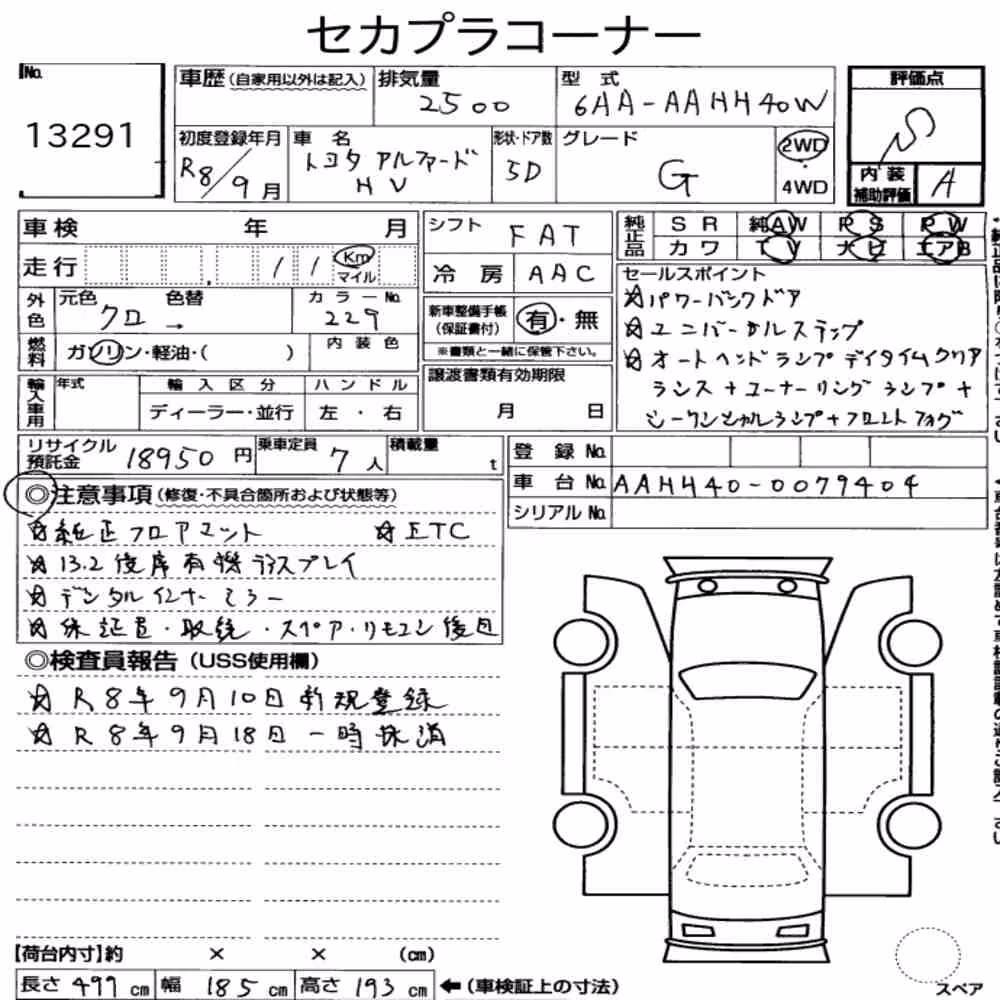 セカプラコーナー
No.
13291
車歴(自家用以外は記入)
排気量
2500
型 式
6AA-AAHH40W
評価点
S
初度登録年月
R8/9月
車 名
トヨタ アルファード
HV
形状・ドア数
5D
グレード
G
2WD
・
4WD
内 装
補助評価
A
車検 年 月
シフト
FAT
純正品
SR 純AW PS PW
カワ TV ナビ エアB
走行 11 Km
マイル
冷 房 AAC
外色
元色 色替
クロ →
カラーNo.
229
新車整備手帳
(保証書付)
有・無
※書類と一緒に保管下さい。
セールスポイント
☆パワーバックドア
☆ユニバーサルステップ
☆オートヘッドランプデイタイムクリア
ランス+コーナーリングランプ+
シークンシャルランプ+フロントフォグ
燃料
ガソリン・軽油・( )
内 装 色
輸入車用
年式
輸 入 区 分
ハ ン ド ル
ディーラー・並行
左 ・ 右
譲渡書類有効期限
月 日
リサイクル
預託金
18950円
乗車定員
7人
積載量
t
登 録 No.
車 台 No. AAHH40-0079404
シリアル No.
◎注意事項(修復・不具合箇所および状態等)
☆純正フロアマット ☆ETC
☆13.2後席有機ディスプレイ
☆デジタルインナーミラー
☆保証書・取説・スペア・リモコン後日
◎検査員報告(USS使用欄)
☆R8年9月10日新規登録
☆R8年9月18日一時抹消
【荷台内寸】約 × × (cm)
長さ 499 cm 幅 185 cm 高さ 193 cm ←(車検証上の寸法)
スペア